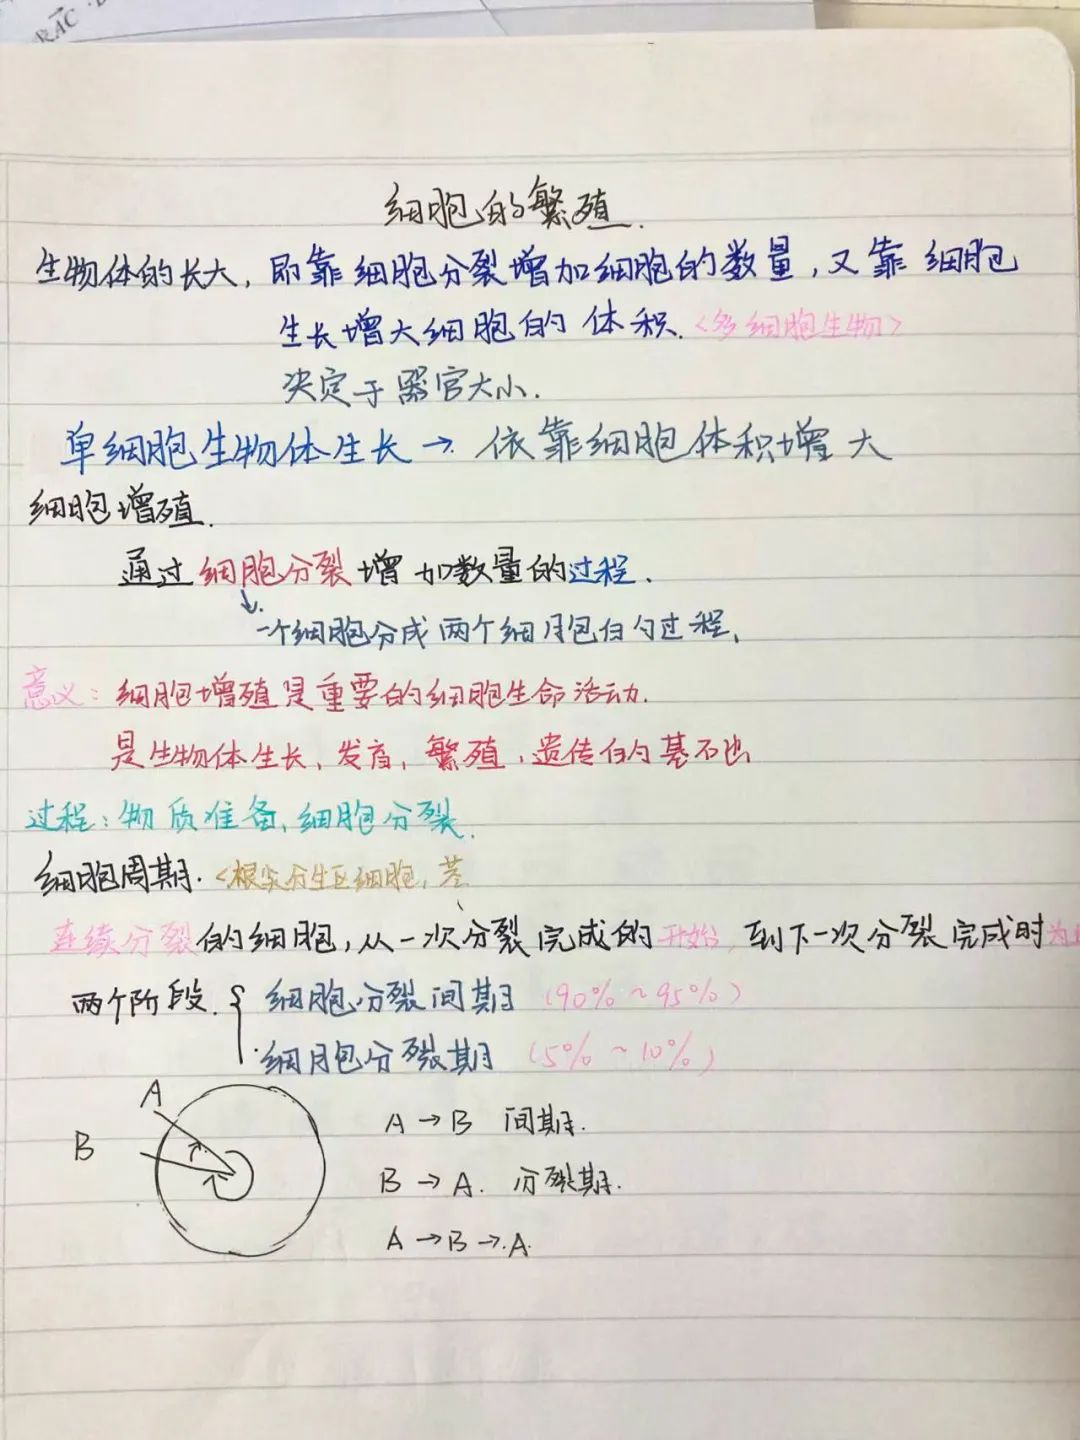 RAC
细胞的繁殖.
生物体的长大,即靠细胞分裂增加细胞的数量,又靠细胞
生长增大细胞的体积.<多细胞生物>
决定于器官大小.
单细胞生物体生长→依靠细胞体积增大
细胞增殖.
通过细胞分裂增加数量的过程.
一个细胞分成两个细胞的过程.
意义:细胞增殖是重要的细胞生命活动.
是生物体生长、发育,繁殖,遗传的基础
过程:物质准备、细胞分裂.
细胞周期.<根尖分生区细胞,茎
连续分裂的细胞,从一次分裂完成的开始,到下一次分裂完成时为止
两个阶段.{细胞分裂间期(90%~95%)
细胞分裂期(5%~10%)
A
B
A→B 间期.
B→A. 分裂期.
A→B→A.